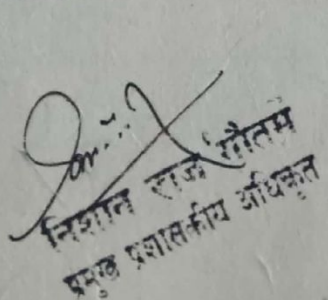 निशान राज गौतम
प्रमुख प्रशासकीय अधिकृत